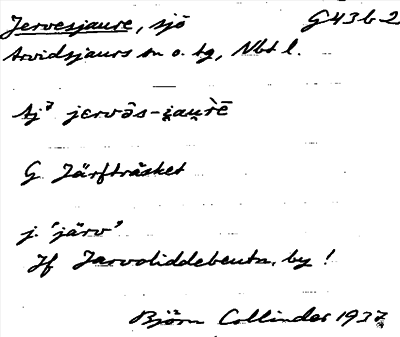 Jervesjaure, sjö G43b2
Arvidsjaurs sn o. tg, Nbt l.
jervə̂s-i̯au̯rē
G Järfträsket
j. 'järv'
Jf Jarvoliddebeuta, by!
Björn Collinder 1937